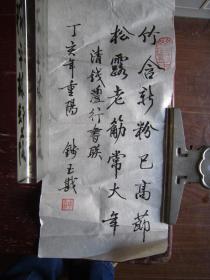 竹含新粉已高節
松露老筋常大年
清錢灃行書联
丁亥年重陽